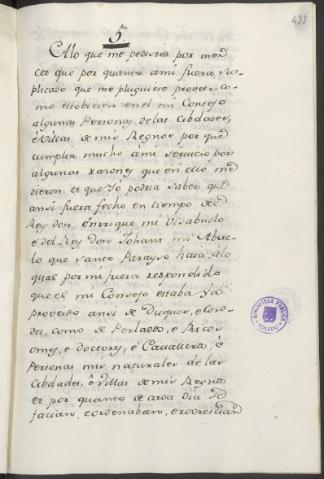 433
5.
Alo que me pedistes por mer
ced que por quanto ami fuera su
plicado que me pluguiere proveer co
mo estobiesen en el mi Consejo
algunas Personas de las Cibdades,
é Villas de mis Regnos por que
cumplia mucho ámi servicio por
algunas razones que en ello me
dieron, et que Yo podria saber que
ansi fuera fecho en tiempo del
Rey don Enrrique mi Visabuelo
é del Rey don Johan mi Abue
lo que Santo Parayso haia: alo
qual por mi fuera respondido
que el mi Consejo estaba ya
proveido ansi de Duques, é Con
des, como de Perlados, é Ricos
omes, é doctores, é Cavalleros, é
Personas mis naturales de las
Cibdades, é Villas de mis Regnos
et por quanto de cada dia se
facian, é ordenaban,
BIBLIOTECA PUBLICA
TOLEDO